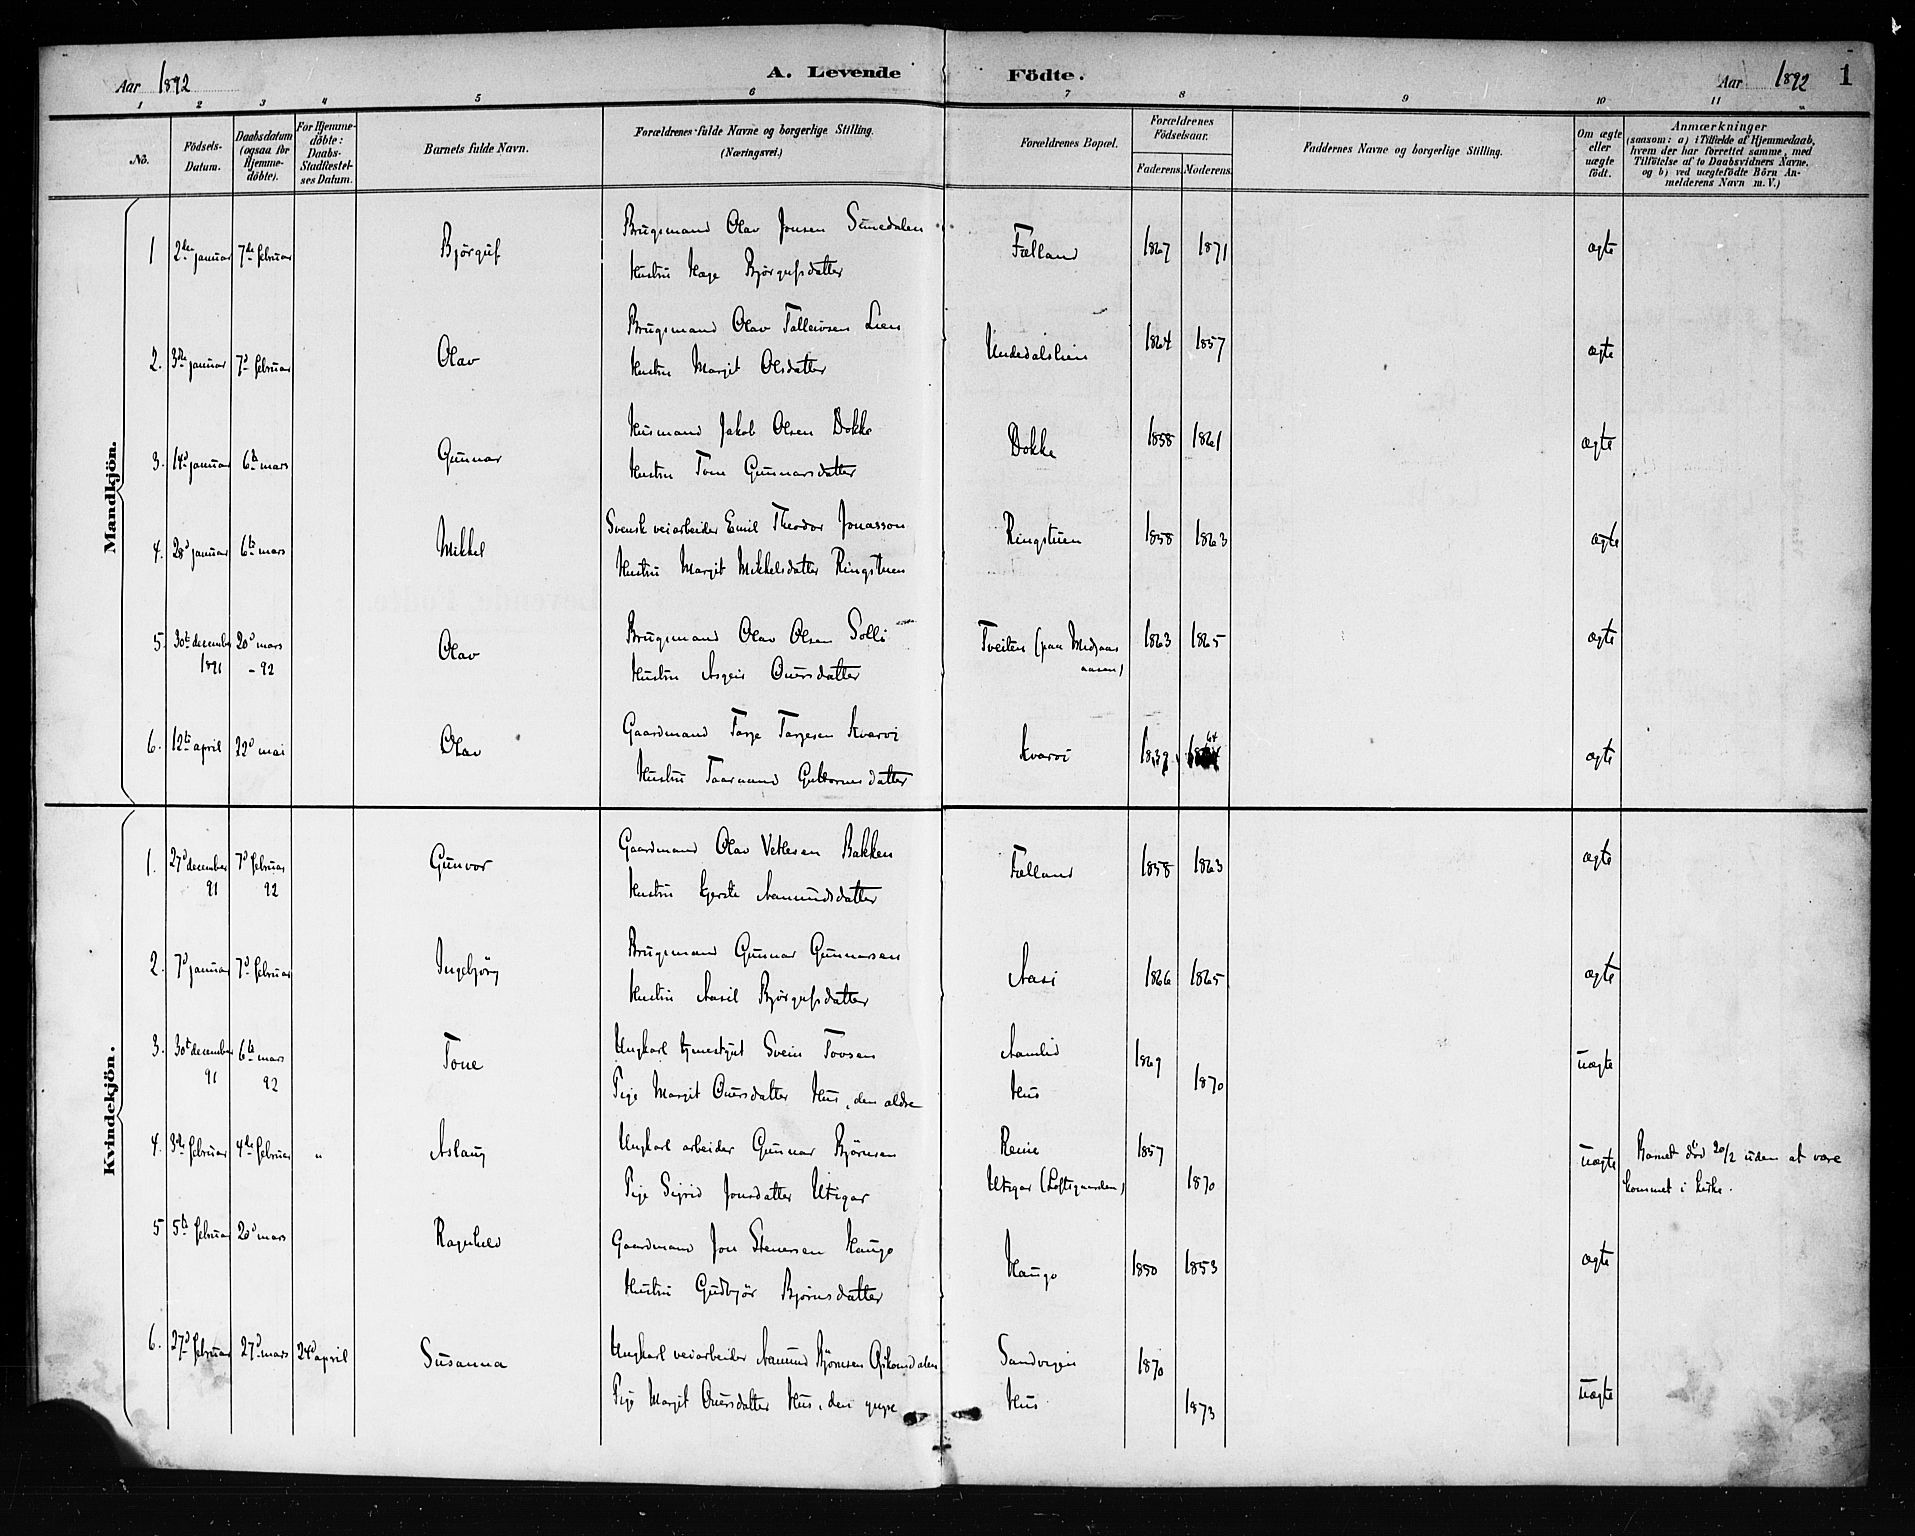 Aar 1892
A. Levende Födte.
Aar 1892 1
1 2 3 4 5 6 7 8 9 10 11
No.
Födsels-Datum.
Daabsdatum (ogsaa for Hjemme-döbte).
For Hjemme-döbte: Daabs-Stadfæstel-ses Datum.
Barnets fulde Navn.
Forældrenes fulde Navne og borgerlige Stilling.
(Næringsvei.)
Forældrenes Bopæl.
Forældrenes Födselsaar.
Faderens. Moderens.
Faddernes Navne og borgerlige Stilling.
Om ægte eller uægte födt.
Anmærkninger
(saasom: a) i Tilfælde af Hjemmedaab, hvem der har forrettet samme, med Tilföielse af to Daabsvidners Navne, og b) ved uægtefödte Börn An-melderens Navn m. V.)
Mandkjön.
1 2den januar 7de februar Bjørguf Brugsmand Olav Jonsen Fælland 1867 1871 ægte
Hustru Hæge Bjørgufsdatter
2. 3die januar 7d februar Olav Brugsmand Olav Talleivsen Lien Undedalslien 1864 1857 ægte
Hustru Margit Olsdatter
3. 14d januar 6te mars Gunnar Husmand Jakob Olsen Dokke Dokke 1858 1861 ægte
Hustru Tone Gunnarsdatter
4. 28d januar 6te mars Mikkel Svensk veiarbeider Emil Theodor Jonasson Ringstuen 1858 1863 ægte
Hustru Margit Mikkelsdatter Ringstuen
5. 30te december 1891 20d mars - 92 Olav Brugsmand Olav Olsen Solli Tveiten (paa Midjaas aasen) 1863 1865 ægte
Hustru Asgeir Oversdatter
6. 12te april 22d mai Olav Gaardmand Tarje Tarjesen Kvarvi Kvarvi 1839 64 ægte
Hustru Taaraand Guttormsdatter
Kvindekjön.
1. 27d december 91 7d februar 92 Gunvor Gaardmand Olav Vetlesen Bakken Fælland 1858 1863 ægte
Hustru Kjerste Aamundsdatter
2. 7d januar 7d februar Ingebjørg Brugsmand Gunnar Gunnarsen Aasi 1866 1865 ægte
Hustru Aasil Bjørgufsdatter
3. 30te december 91 6te mars 92 Tone Ungkarl tjenestgut Svein Tovsen Aamlid 1869 uægte
Pige Margit Oversdatter Hus, den ældre Hus 1870
4. 3die februar 4de februar " Aslaug Ungkarl arbeider Gunnar Bjørnsen Reine 1857 uægte Barnet død 20/2 uden at være
Pige Sigrid Jonsdatter Utigar Utigar (Loftsgaarden) 1870 kommet i kirke.
5 5te februar 20d mars Ragnhild Gaardmand Jon Stenersen Haugo Haugo 1850 1853 ægte
Hustru Gudbjør Bjørnsdatter
6. 27d februar 27d mars 24d april Susanna Ungkarl veiarbeider Aamund Bjørnsen Sandvigen 1870 uægte
Pige Margit Oversdatter Hus, den yngre Hus 1873